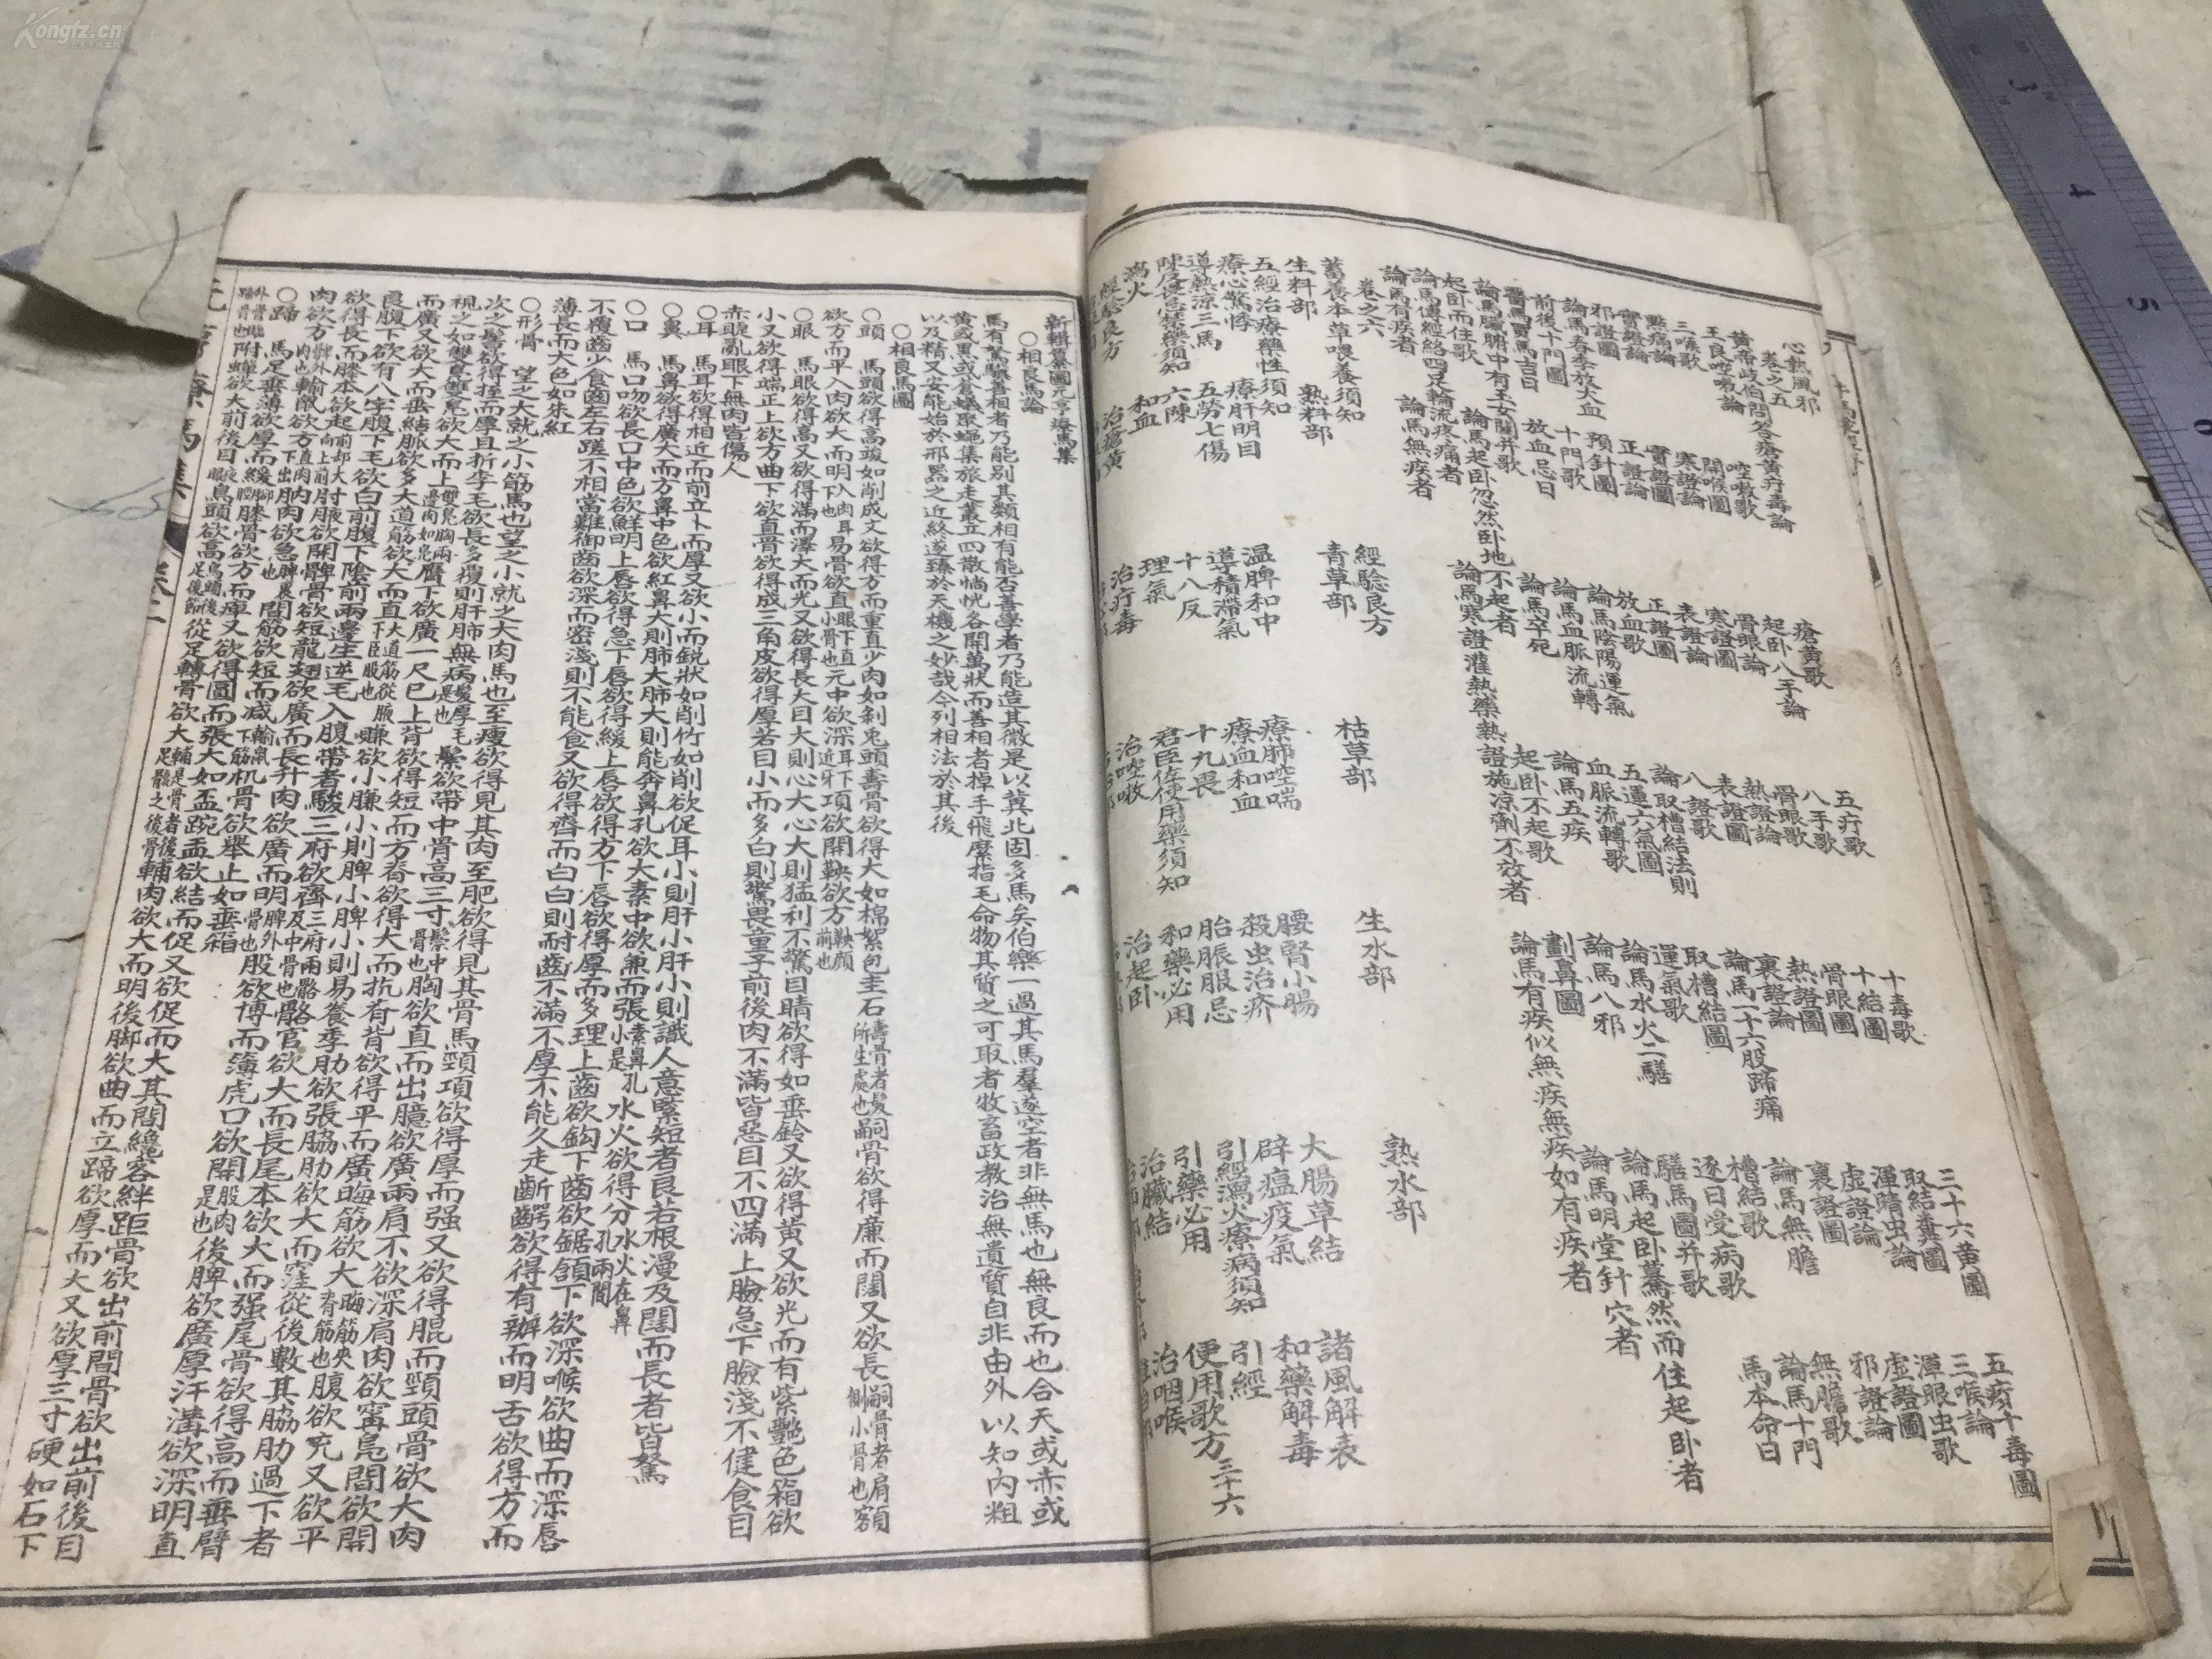 心熱風邪 瘡黃歌 五疔歌 十毒歌 三十六黃圖 五瘡十毒圖
卷之五
黃帝岐伯問答瘡黃疔毒論 起卧八手論 八手歌 十結圖 取結糞圖 三喉論
王良哽嗽論 哽嗽歌 骨眼論 骨眼歌 骨眼圖 渾睛虫論 渾眼虫歌
三喉歌 開喉圖 寒證圖 熱證論 熱證圖 虛證論 虛證圖
點痛論 寒證論 表證論 表證圖 裏證論 裏證圖 邪證論
實證論 實證圖 正證圖 八證歌 論馬一十六般蹄痛 論馬無膽 無膽歌
邪證圖 正證論 放血歌 論取槽結法則 取槽結圖 槽結歌 論馬十門
論馬春季放大血 預針圖 論馬陰陽運氣 五運六氣圖 運氣歌 逐日受病歌 馬本命日
前後十門圖 十門歌 論馬血脈流轉 血脈流轉歌 論馬水火二騸 騸馬圖并歌
醫馬買馬吉日 放血忌日 論馬卒死 論馬五疾 論馬八邪 論馬起卧驀然而住起卧者
論馬臟腑中有玉女關并歌 論馬起卧忽然卧地不起者 起卧不起歌 劃鼻圖 論馬明堂針穴者
起卧而住歌 論馬寒證灌熱藥熱證施涼劑不效者 論馬有疾似無疾無疾如有疾者
論馬傳經絡四足輪流疼痛者
論馬有疾者 論馬無疾者
卷之六
蓄養本草喂養須知 經驗良方
生料部 熟料部 青草部 枯草部 生水部 熟水部
五經治療藥性須知 溫脾和中 療肺哽喘 腰腎小腸 大腸草結 諸風解表
療心驚悸 療肝明目 導積滯氣 療血和血 殺虫治疥 辟瘟疫氣 和藥解毒
導熱涼三焉 五勞七傷 十八反 十九畏 胎脹服忌 引經瀉火療病須知 引經
六陳 君臣佐使用藥須知 和藥必用 引藥必用 便用歌方三十六
瀉火 和血 理氣 治哽嗽 治起卧 治臟結 治咽喉
經驗良方 治瘡黃 治疔毒
新輯纂圖元亨療馬集
〇相良馬論
馬有駑驥善相者乃能別其類相有能否善學者乃能造其微是以冀北固多馬矣伯樂一過其馬羣遂空者非無馬也無良而也合天或赤或
黃或黑或蒼蟻聚蠅集旅走叢立四散惝恍各開萬狀而善相者掉手飛麾指毛命物其質之可取者牧畜政教治無遺質自非由外以知內粗
以及精又安能始於形器之近終遂臻於天機之妙哉今列相法於其後
〇相良馬圖
〇頭 馬頭欲得高峻如削成又欲得方而重直少肉如剝兎頭壽骨欲得大如棉絮包圭石壽骨者髮所生處也嗣骨欲得廉而闊又欲長嗣骨者肩額側小骨也額
欲方而平入肉欲大而明入肉耳下也易骨欲直眼下直小骨也元中欲深耳下近牙項欲開鞅欲方鞅顔前也
〇眼 馬眼欲得高又欲得滿而澤大而光又欲得長大目大則心大心大則猛利不驚目睛欲得如垂鈴又欲得黃又欲光而有紫艷色箱欲
小又欲得端正上欲方曲下欲直骨欲得成三角皮欲得厚若目小而多白則驚畏童子前後肉不滿皆惡目不四滿上臉急下臉淺不健食目
赤睫亂眼下無肉皆傷人
〇耳 馬耳欲得相近而前立卜而厚又欲小而銳狀如削竹如削欲促耳小則肝小肝小則識人意緊短者良若根漫及闊而長者皆駑
〇鼻 馬鼻欲得廣大而方鼻中色欲紅鼻大則肺大肺大則能奔鼻孔欲大素中欲兼而張素鼻孔小是水火欲得分水火在鼻孔兩間
〇口 馬口吻欲長口中色欲鮮明上唇欲得急下唇欲得緩上唇欲得方下唇欲得厚而多理上齒欲鈎下齒欲鋸頷下欲深喉欲曲而深唇
不覆齒少食齒左右蹉不相當難御齒欲深而密淺則不能食又欲得齊而白白則耐齒不滿不厚不能久走齗齶欲得有瓣而明舌欲得方而
薄長而大色如朱紅
〇形骨 望之大就之小筋馬也望之小就之大肉馬也至瘦欲得見其肉至肥欲得見其骨馬頸項欲得厚而强又欲得䐊而頸頭骨欲大肉
次之髻欲得桎而厚且折季毛欲長多覆則肝肺無病髮厚毛是也鬃欲帶中骨高三寸鬃中骨也胸欲直而出臆欲廣兩肩不欲深肩肉欲寗鳬間欲開
視之如雙鳧雙鳧欲大而上雙鳧胸兩邊肉如鳧膺下欲廣一尺已上背欲得短而方脊欲得大而抗脊背欲得平而廣晦筋欲大晦筋夾脊筋也腹欲充又欲平
而廣又欲大而垂結脈欲多大道筋欲大而直大道筋從腋下臣股也賺欲小賺小則脾小脾小則易養季肋欲張脇肋欲大而窪從後數其脇肋過下者
良腹下欲有八字腹下毛欲白前腹下陰前兩邊生逆毛入腹帶者駿三府欲齊三府兩髂及中骨也髂官欲大而長尾本欲大而强尾骨欲得高而垂臂
欲得長而膝本欲起肘欲開髀骨欲短龍翅欲廣而長升肉欲廣而明脾外骨也股欲博而簿虎口欲開股肉是也後脾欲廣厚汗溝欲深明直
肉欲方輸鼠欲方肉欲急間筋欲短而减机骨欲舉止如垂箱
〇蹄 馬足垂薄欲厚而緩膝骨欲方而庳又欲得圓而張大如盃踠盂欲結而促又欲促而大其間纔容絆距骨欲出前間骨欲出前後目
附蟬欲大前後目鳥頭欲高從足轉骨欲大輔肉欲大而明後脚欲曲而立蹄欲厚而大又欲厚三寸硬如石下
元亨療馬集 卷二